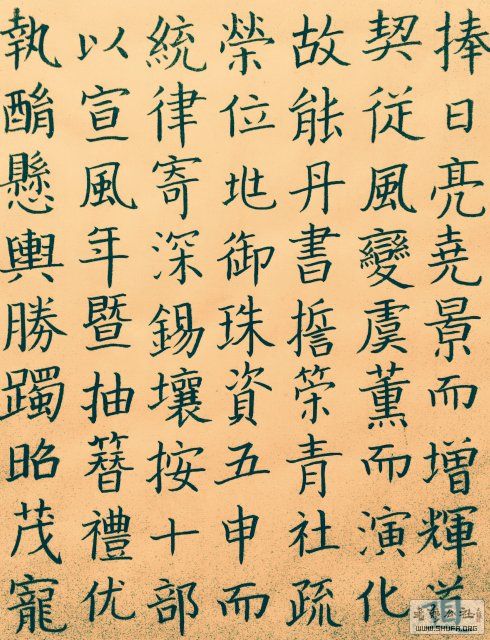 捧日亮堯景而增輝道
契従風變虞薰而演化
故能丹書擔䇦青社疏
榮位岀御珠資五申而
統律寄深錫壤按十部
以宣風年暨抽簪禮优
執酳懸輿勝躅昭茂寵
WWW.SHUFA.ORG